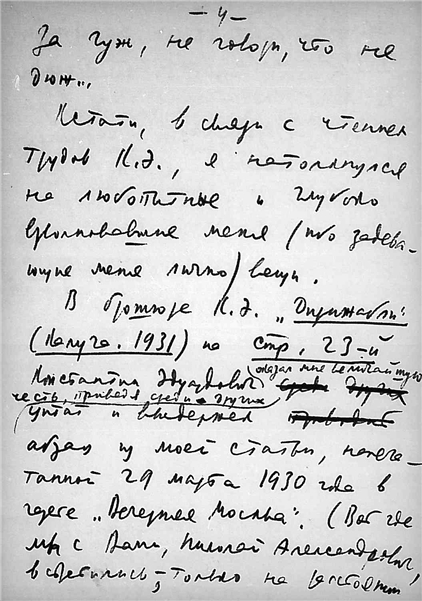 – 4 –
За гуж, не говори, что не
дюж...
Кстати, в связи с чтением
трудов К.Э., я натолкнулся
на любопытные и глубоко
взволновавшие меня (ибо задева-
ющие меня лично) вещи.
В брошюре К.Э. „Дирижабли"
(Калуга. 1931) на стр. 23-й
Константин Эдуардович (оказал мне величайшую
честь, приведя среди других
цитат и выдержек
абзац из моей статьи, напеча-
танной 29 марта 1930 года в
газете „Вечерняя Москва". (Вот где
мы с Вами, Николай Александрович,
встретились –, только на расстоянии